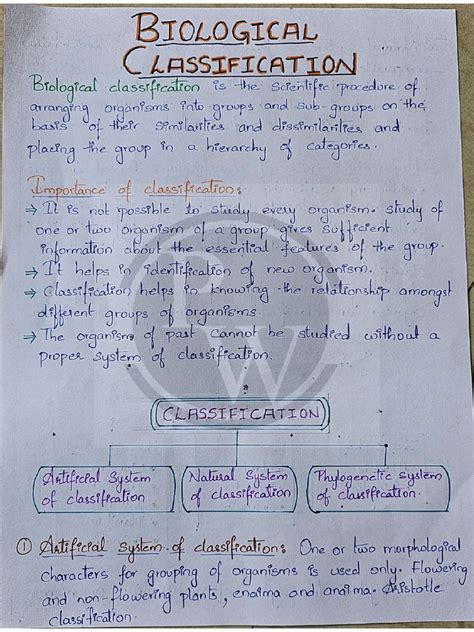 BIOLOGICAL
CLASSIFICATION
Biological classification is the scientific procedure of
arranging organisms into groups and sub-groups on the
basis of their similarities and dissimilarities and
placing the group in a hierarchy of categories.
Importance of classification:
⇒ It is not possible to study every organism. study of
one or two organism of a group gives sufficient
information about the essential features of the group.
⇒ It helps in identification of new organism.
⇒ Classification helps in knowing the relationship amongst
different groups of organisms.
⇒ The organism of past cannot be studied without a
proper system of classification.
PW
CLASSIFICATION
Artificial System
of classification
Natural System
of classification
Phylogenetic system
of classification.
① Artificial system of classification: One or two morphological
characters for grouping of organisms is used only. Flowering
and non-flowering plants, enaima and anaima. Aristotle
classification.